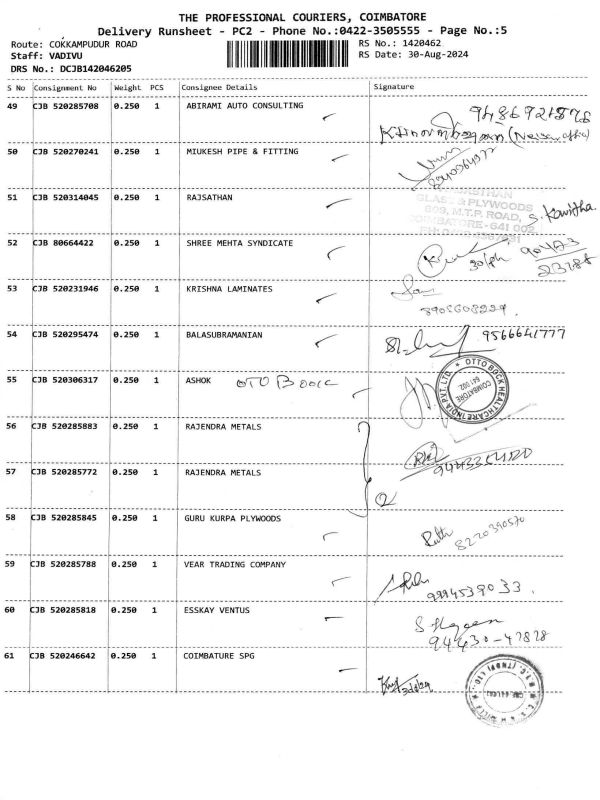 THE PROFESSIONAL COURIERS, COIMBATORE
Delivery Runsheet - PC2 - Phone No.:0422-3505555 - Page No.:5
Route: COKKAMPUDUR ROAD
RS No.: 1420462
Staff: VADIVU
RS Date: 30-Aug-2024
DRS No.: DCJB142046205
S No Consignment No Weight PCS Consignee Details Signature
49 CJB 520285708 0.250 1 ABIRAMI AUTO CONSULTING
50 CJB 520270241 0.250 1 MIUKESH PIPE & FITTING
51 CJB 520314045 0.250 1 RAJSATHAN
GLASS & PLYWOODS
609, M.T.P. ROAD,
COIMBATORE - 641 002
S. Kavitha
52 CJB 80664422 0.250 1 SHREE MEHTA SYNDICATE
53 CJB 520231946 0.250 1 KRISHNA LAMINATES
54 CJB 520295474 0.250 1 BALASUBRAMANIAN
9566641777
55 CJB 520306317 0.250 1 ASHOK OTTO BOCK
OTTO BOCK HEALTHCARE INDIA PVT. LTD.
COIMBATORE
641 002.
56 CJB 520285883 0.250 1 RAJENDRA METALS
57 CJB 520285772 0.250 1 RAJENDRA METALS
2
58 CJB 520285845 0.250 1 GURU KURPA PLYWOODS
8220390570
59 CJB 520285788 0.250 1 VEAR TRADING COMPANY
9994539033.
60 CJB 520285818 0.250 1 ESSKAY VENTUS
94430-47878
61 CJB 520246642 0.250 1 COIMBATURE SPG